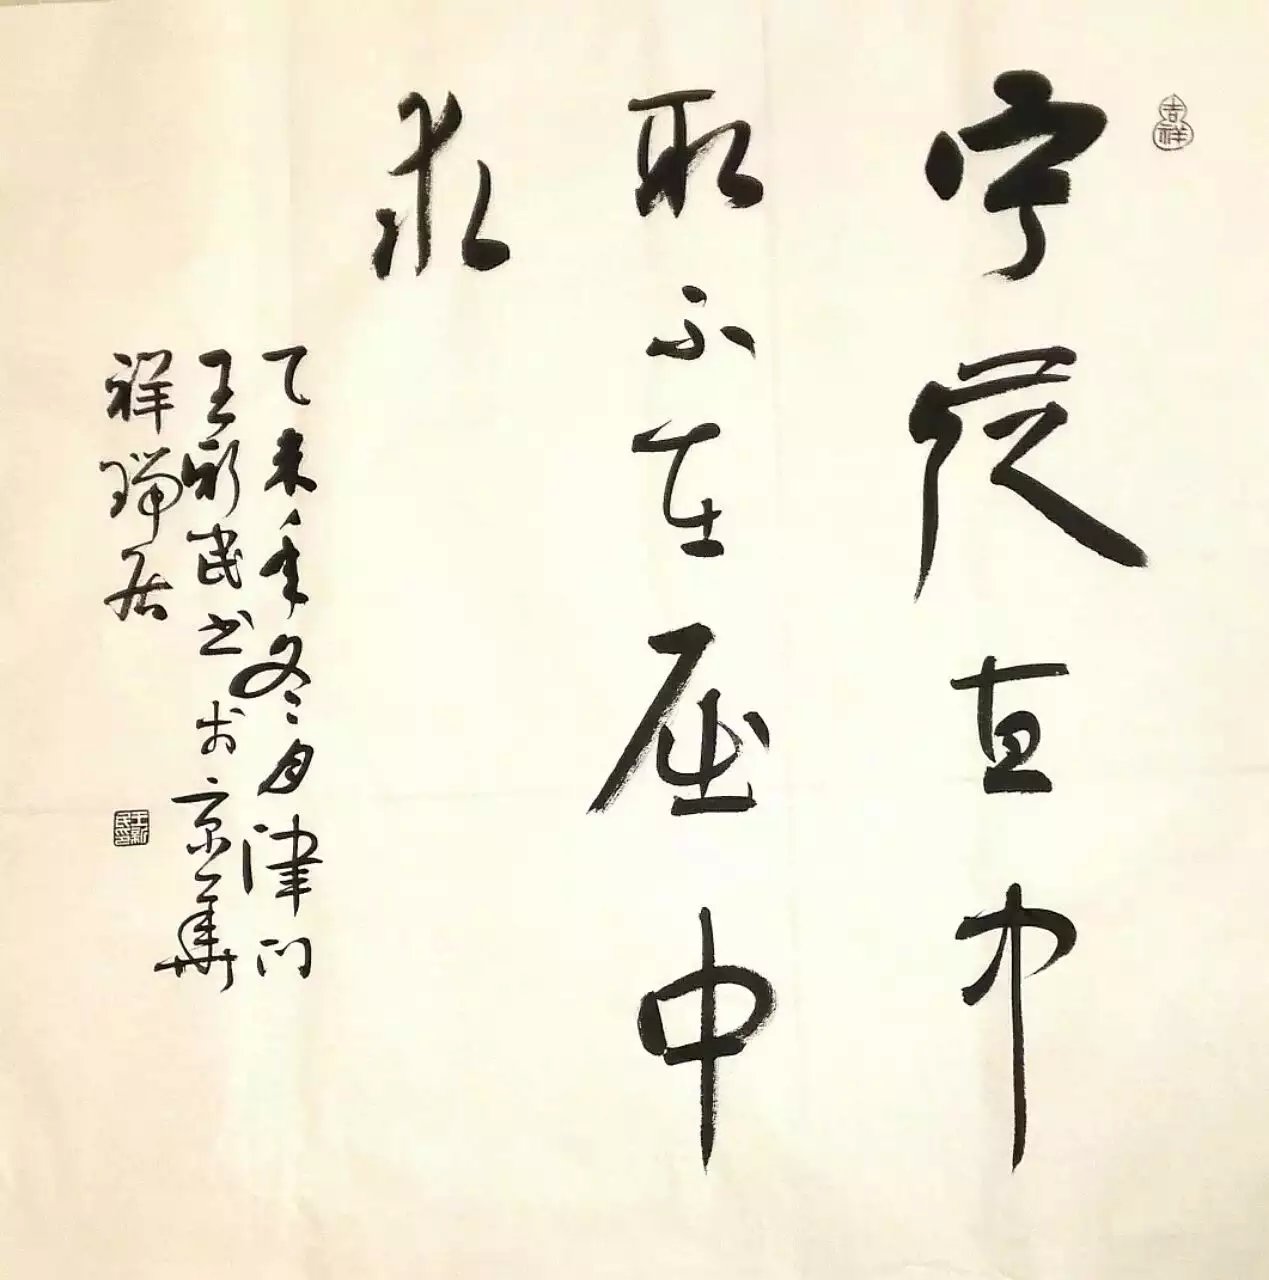 吉祥
宁從直中
取不在屈中
求
乙未年冬月津门
王新民书于京華
祥瑞居
王新民印